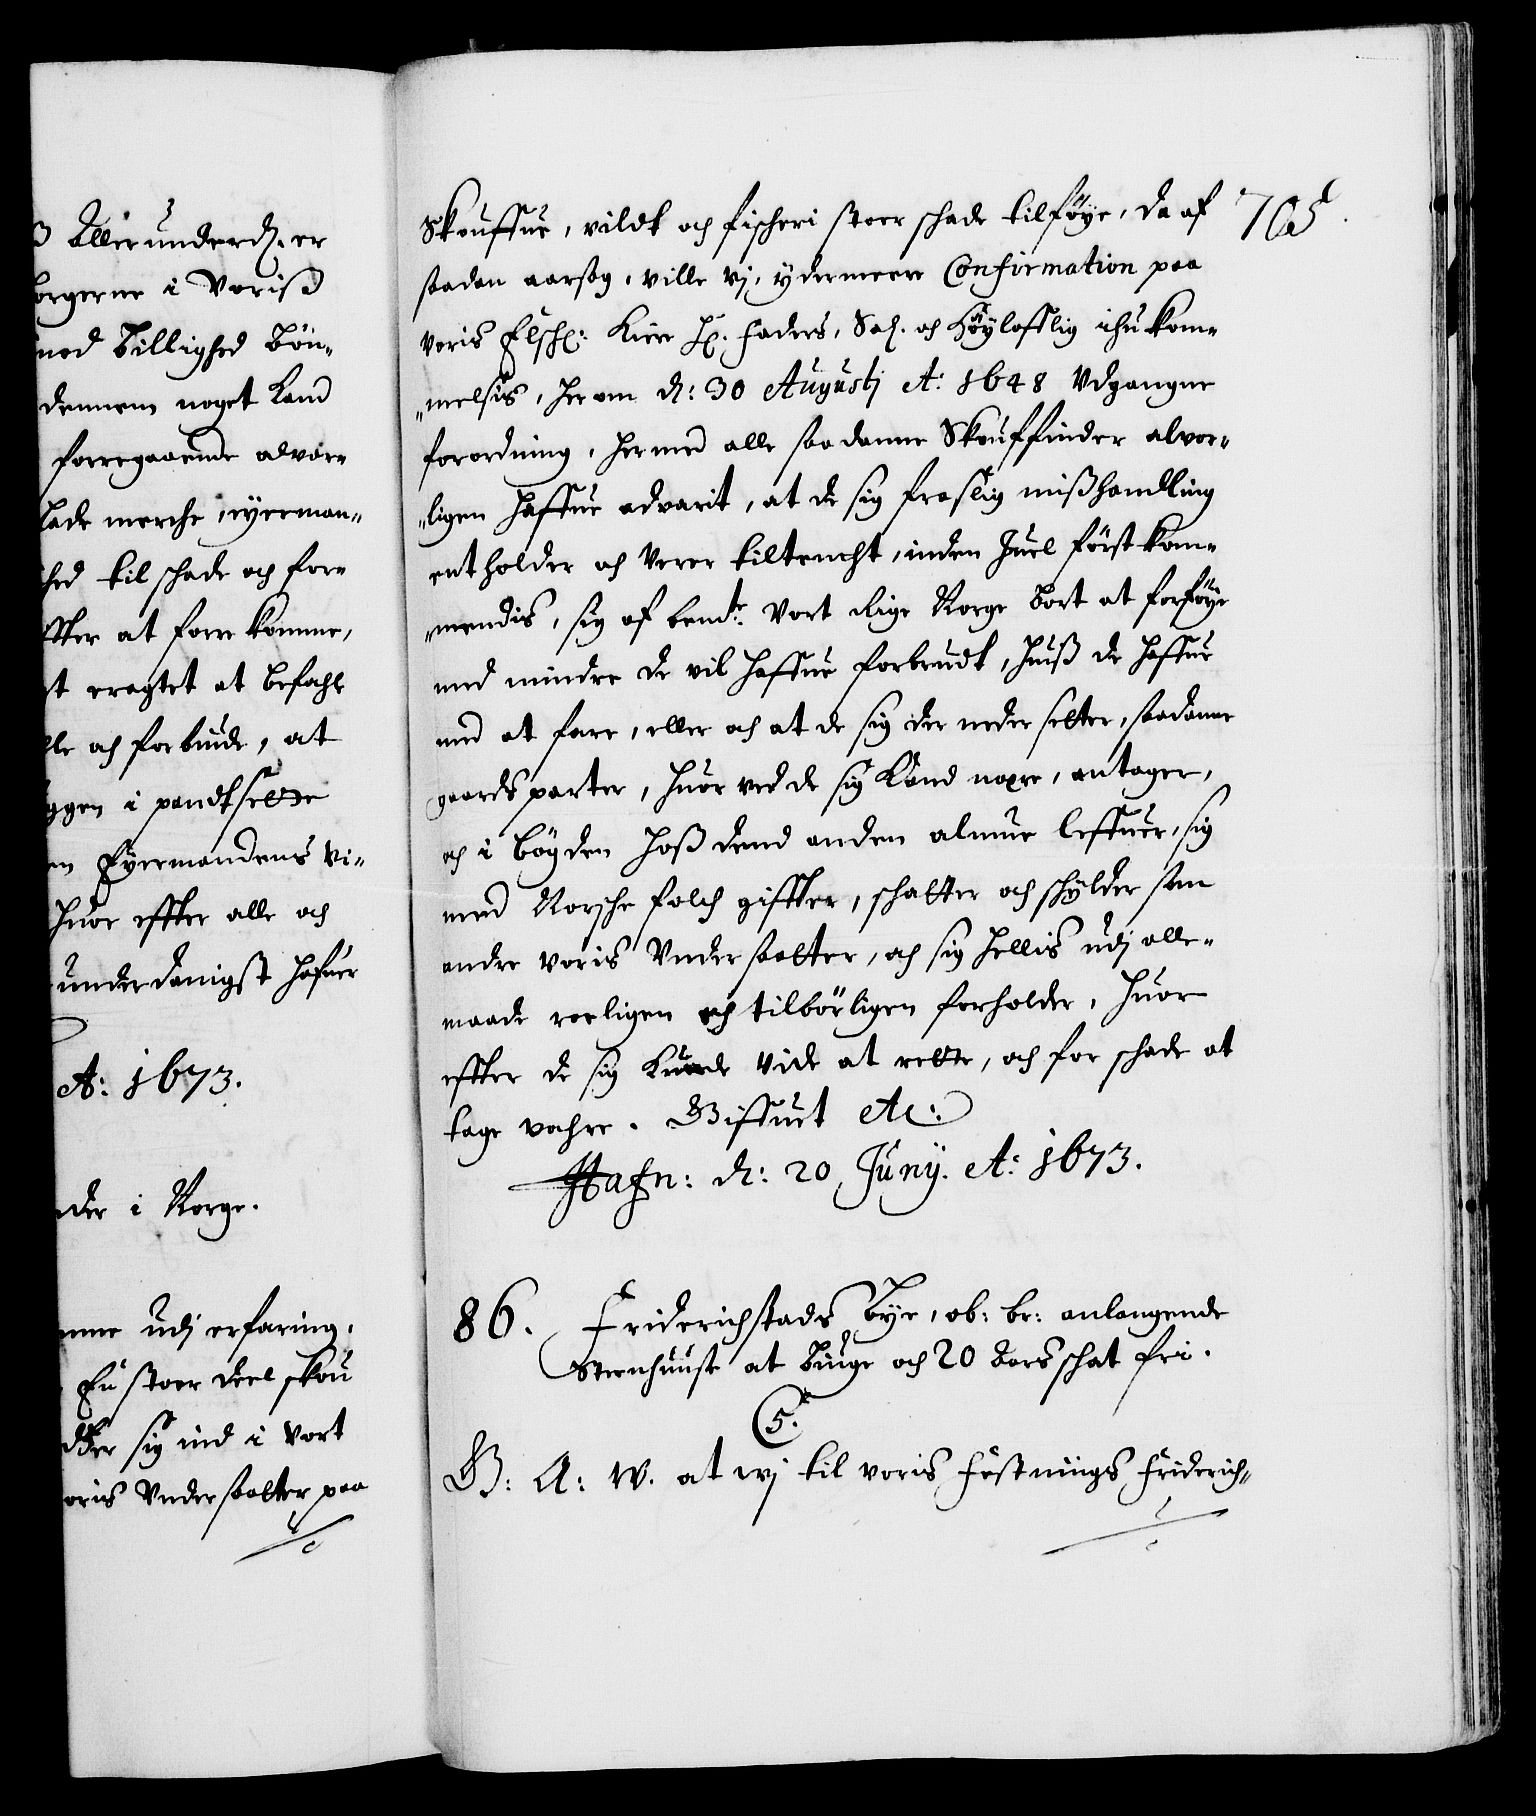 ß Allerunderd. er
borgerne i Voriß
med Billighed Bön-
dennem noget Land
forregaaende alvor-
lade merche, eyerman-
hed til schade och for-
ffter at forrekomme,
st eragtet at befahle
lle och forbiude, at
ggen i pandtsette
en Eyermandens Vi-
Huor effter alle och
underdanigst hafuer
A: 1673.
der i Norge.
mme udj erfaring,
En stoer deel skou
der sig ind i Vort
oris Undersaatter paa
705.
Skouffue, vildt och fischeri stoer schade tilföye, da af
saadan aarsag, ville vj, ydermeere Confirmation paa
voris Elsch: Kiere H. Faders, Sal. och Höyloflig ihukom-
melsis, her om d: 30 Augustj A: 1648 Udgangne
forordning, hermed alle saadanne Skouffinder alvor-
ligen haffue advarit, at de sig fra slig mißhandling
entholder och verer tiltencht, inden Juel först kom-
mendis, sig af bemte: Vort Rige Norge bort at forföye
med mindre de vil haffue forbrudt, huiß de haffue
med at fare, eller och at de sig der neder setter, saadanne
gaardsparter, huor ved de sig kand nære, antager,
och i bögden hoß dend anden almue leffuer, sig
med Norsche folch giffter, schatter och schylder som
andre voris Undersaatter, och sig hellis udj alle-
maade roeligen och tilbörligen forholder, huor
effter de sig kunde vide at rette, och for schade at
tage vahre. Giffuet etc:
Hafn: d: 20 Junij. A: 1673.
86. Friderichstads Bye, ob: br: anlangende
Steenhuuse at biuge och 20 Aars schat fri.
C5.
G: A: W. at wj til voris Festnings Friderich-